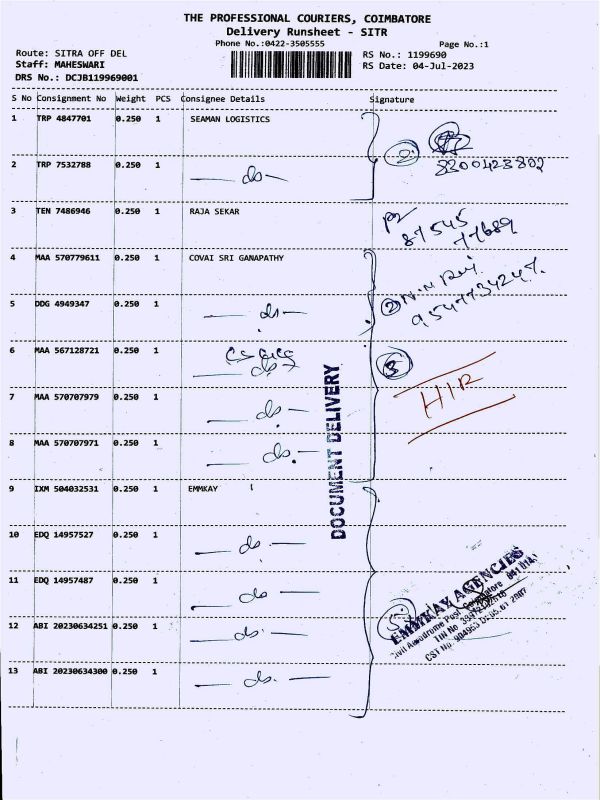 THE PROFESSIONAL COURIERS, COIMBATORE
Delivery Runsheet - SITR
Phone No.:0422-3505555
Page No.:1
Route: SITRA OFF DEL
RS No.: 1199690
Staff: MAHESWARI
RS Date: 04-Jul-2023
DRS No.: DCJB119969001
S No Consignment No Weight PCS Consignee Details Signature
1 TRP 4847701 0.250 1 SEAMAN LOGISTICS
2 TRP 7532788 0.250 1 — do —
2
8300423802
3 TEN 7486946 0.250 1 RAJA SEKAR
87545
77689
4 MAA 570779611 0.250 1 COVAI SRI GANAPATHY
5 DDG 4949347 0.250 1 — do —
2
9547734247
6 MAA 567128721 0.250 1
— do —
3
HIR
7 MAA 570707979 0.250 1 — do —
8 MAA 570707971 0.250 1 — do. —
DOCUMENT DELIVERY
9 IXM 504032531 0.250 1 EMMKAY
10 EDQ 14957527 0.250 1 — do. —
11 EDQ 14957487 0.250 1 — do —
12 ABI 20230634251 0.250 1 — do. —
13 ABI 20230634300 0.250 1 — do. —
5
EMMKAY AGENCIES
Civil Aerodrome Post Coimbatore 641 014
TIN No
CST No.